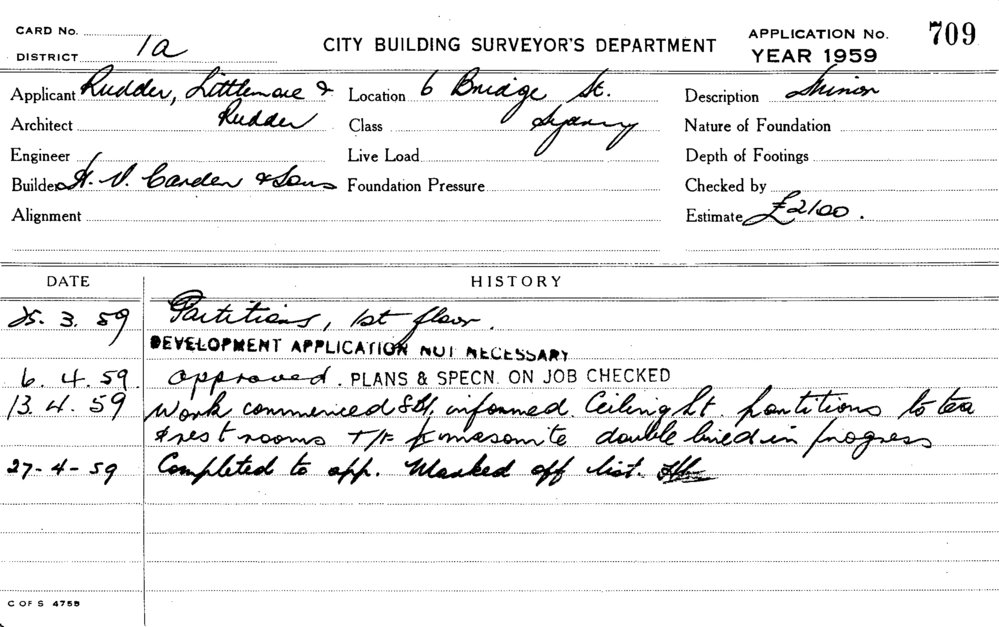 CARD No.
DISTRICT 1a
CITY BUILDING SURVEYOR'S DEPARTMENT
APPLICATION No. 709
YEAR 1959
Applicant Rudder, Littlemore &
Rudder
Location 6 Bridge St.
Sydney
Description Minor
Architect
Class
Nature of Foundation
Engineer
Live Load
Depth of Footings
Builder H. V. Carden & Sons
Foundation Pressure
Checked by
Alignment
Estimate £2100.
DATE HISTORY
25. 3. 59 Partitions, 1st floor.
DEVELOPMENT APPLICATION NOT NECESSARY
6. 4. 59. approved. PLANS & SPECN. ON JOB CHECKED
13. 4. 59 Work commenced informed. Ceiling ht. partitions to tea
& rest rooms T/F masonite double lined in progress
27-4-59 Completed to app. Marked off list.
C OF S 4759